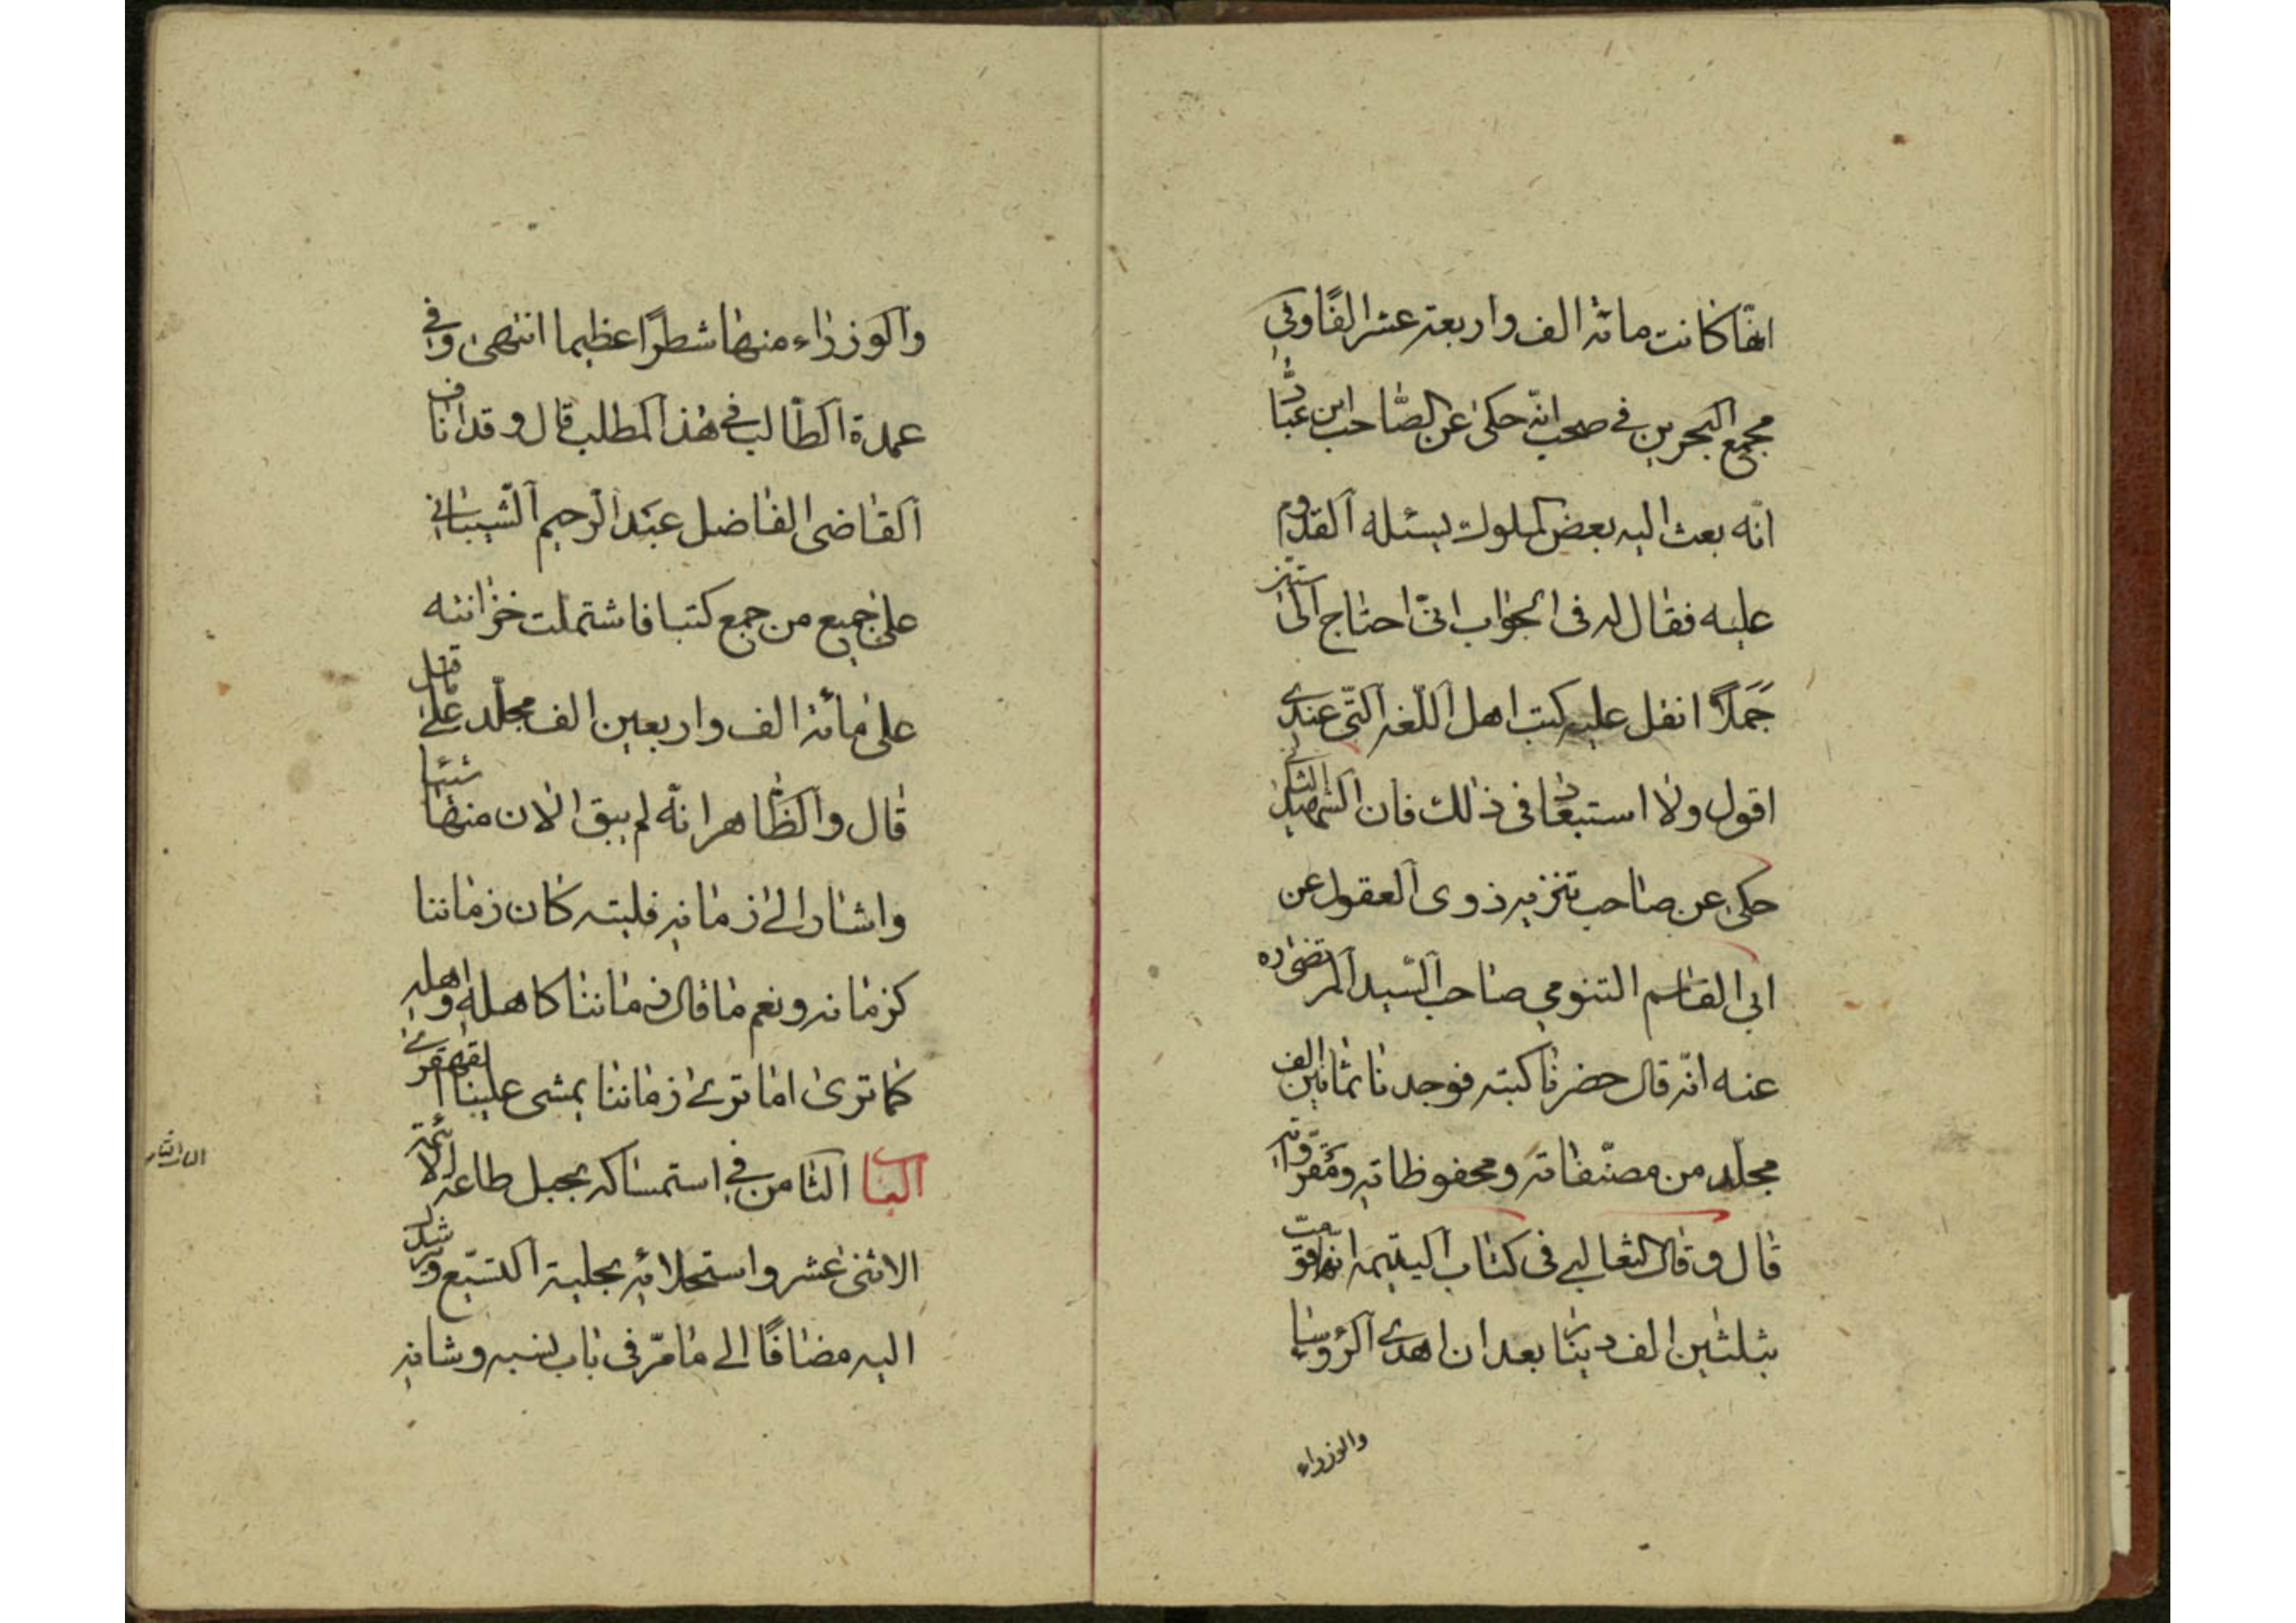 انها كانت مائة الف واربعة عشر الفًا وفى
مجمع البحرين فى صحب انه حكى عن الصّاحب ابن عبّاد
انه بعث اليه بعض الملوك يسئله القدوم
عليه فقال له فى الجواب انى احتاج الى ستين
جَمَلًا انقل عليه كتب اهل اللّغة الّتى عندى
اقول ولا استبعاد فى ذلك فان الشهيد الثانى
حكى عن صاحب تنزيه ذوى العقول عن
ابى القاسم التنوخى صاحب السّيد المرتضى ره
عنه انه قال حضرنا كتبه فوجدنا ثمانين الف
مجلد من مصنّفاته ومحفوظاته ومقرّواته
قال وقال الثعالبى فى كتاب اليتيمة انها قوّمت
بثلثين الف دينار بعد ان اهدى الرؤساء
والوزراء
والوزراء منها شطرًا عظيما انتهى وفى
عمدة الطّالب فى هذا المطلب قال وقد اناف
القاضى الفاضل عبد الرّحيم الشّيبانى
على جميع من جمع كتبا فاشتملت خزانته
على مائة الف واربعين الف مجلّد على ما نقل
قال والظّاهر انّه لم يبق الان منها شيئا
واشار الى زمانه فليته كان زماننا
كزمانه ونعم ما قال زماننا كاهله واهله
كما ترى اما ترى زماننا يمشى علينا القهقرى
الباب الثامن فى استمساكه بحبل طاعة الائمة
الاثنى عشر واستحلائه بحلية التشيّع
اليه مضافًا الى ما مرّ فى باب نسبه وشانه
الباب الثامن